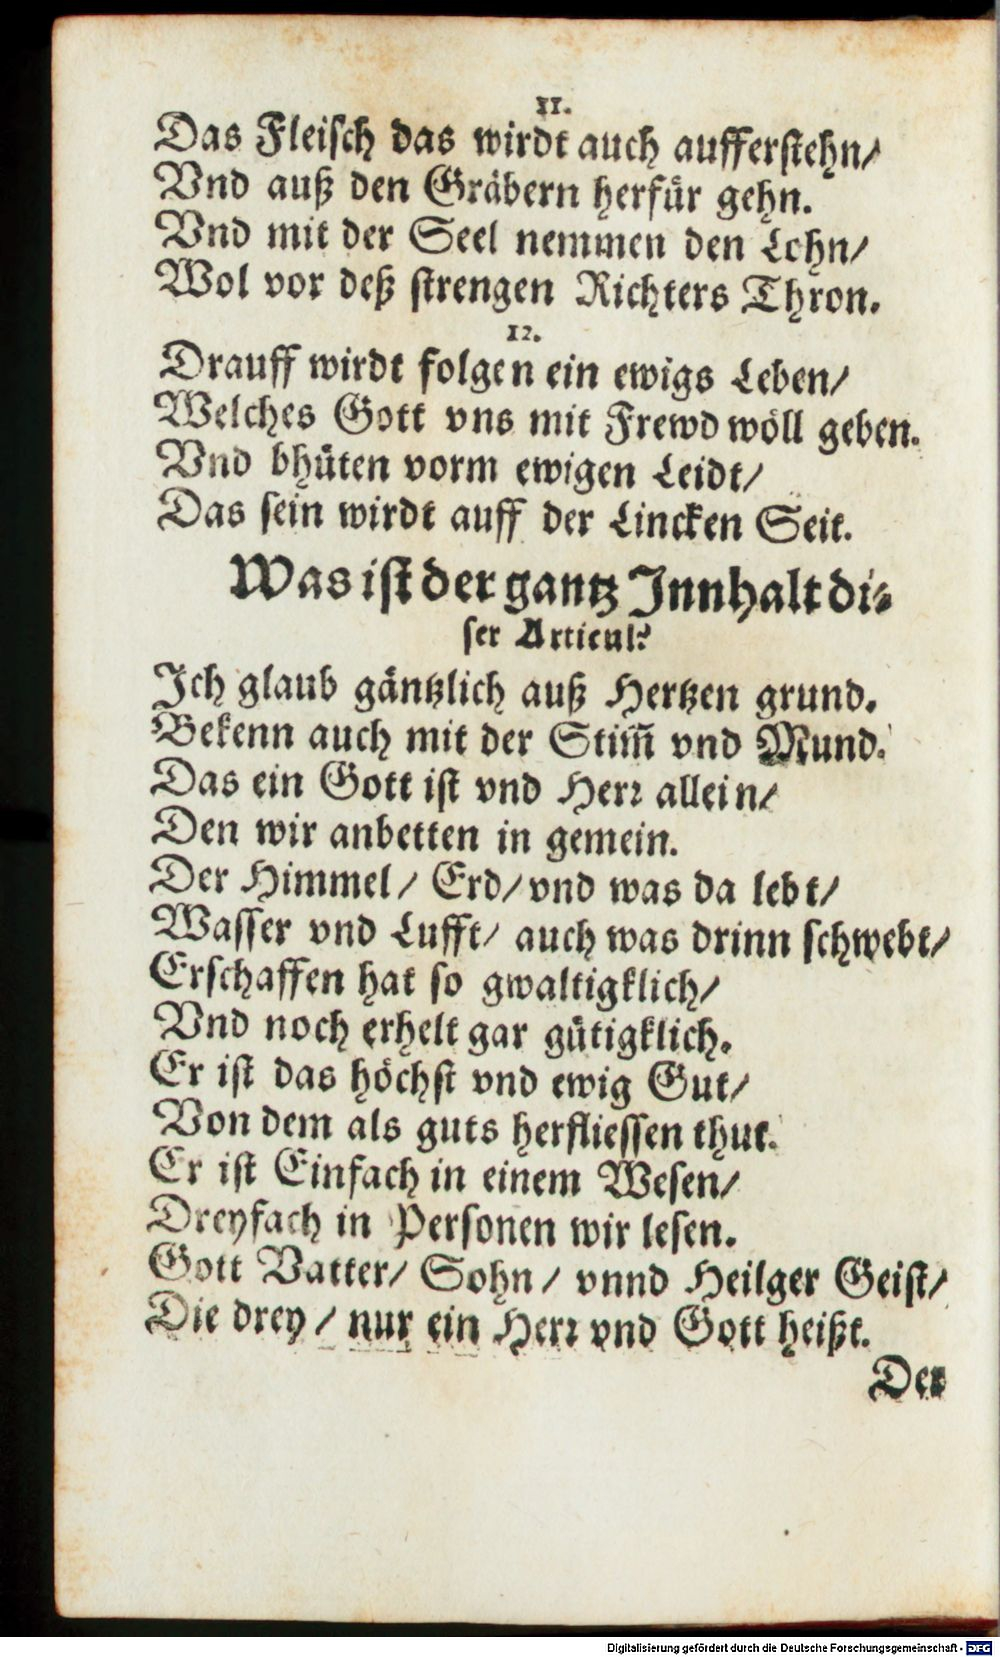 11.
Das Fleisch das wirdt auch aufferstehn/
Vnd auß den Gräbern herfür gehn.
Vnd mit der Seel nemmen den Lohn/
Wol vor deß strengen Richters Thron.
12.
Drauff wirdt folgen ein ewigs Leben/
Welches Gott vns mit Frewd wöll geben.
Vnd bhüten vorm ewigen Leidt/
Das sein wirdt auff der Lincken Seit.
Was ist der gantz Innhalt di-
ser Articul?
Ich glaub gäntzlich auß Hertzen grund.
Bekenn auch mit der Stim̃ vnd Mund.
Das ein Gott ist vnd Herr allein/
Den wir anbetten in gemein.
Der Himmel/ Erd/ vnd was da lebt/
Wasser vnd Lufft/ auch was drinn schwebt/
Erschaffen hat so gwaltigklich/
Vnd noch erhelt gar gütigklich.
Er ist das höchst vnd ewig Gut/
Von dem als guts herfliessen thut.
Er ist Einfach in einem Wesen/
Dreyfach in Personen wir lesen.
Gott Vatter/ Sohn/ vnnd Heilger Geist/
Die drey/ nur ein Herr vnd Gott heißt.
Der
Digitalisierung gefördert durch die Deutsche Forschungsgemeinschaft - DFG